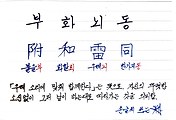 부 화 뇌 동
附 和 雷 同
붙을부 화할화 우레뇌 한가지동
「우레 소리에 맞춰 함께한다」는 뜻으로, 자신의 뚜렷한
소신없이 그저 남이 하는대로 따라가는 것을 의미함.